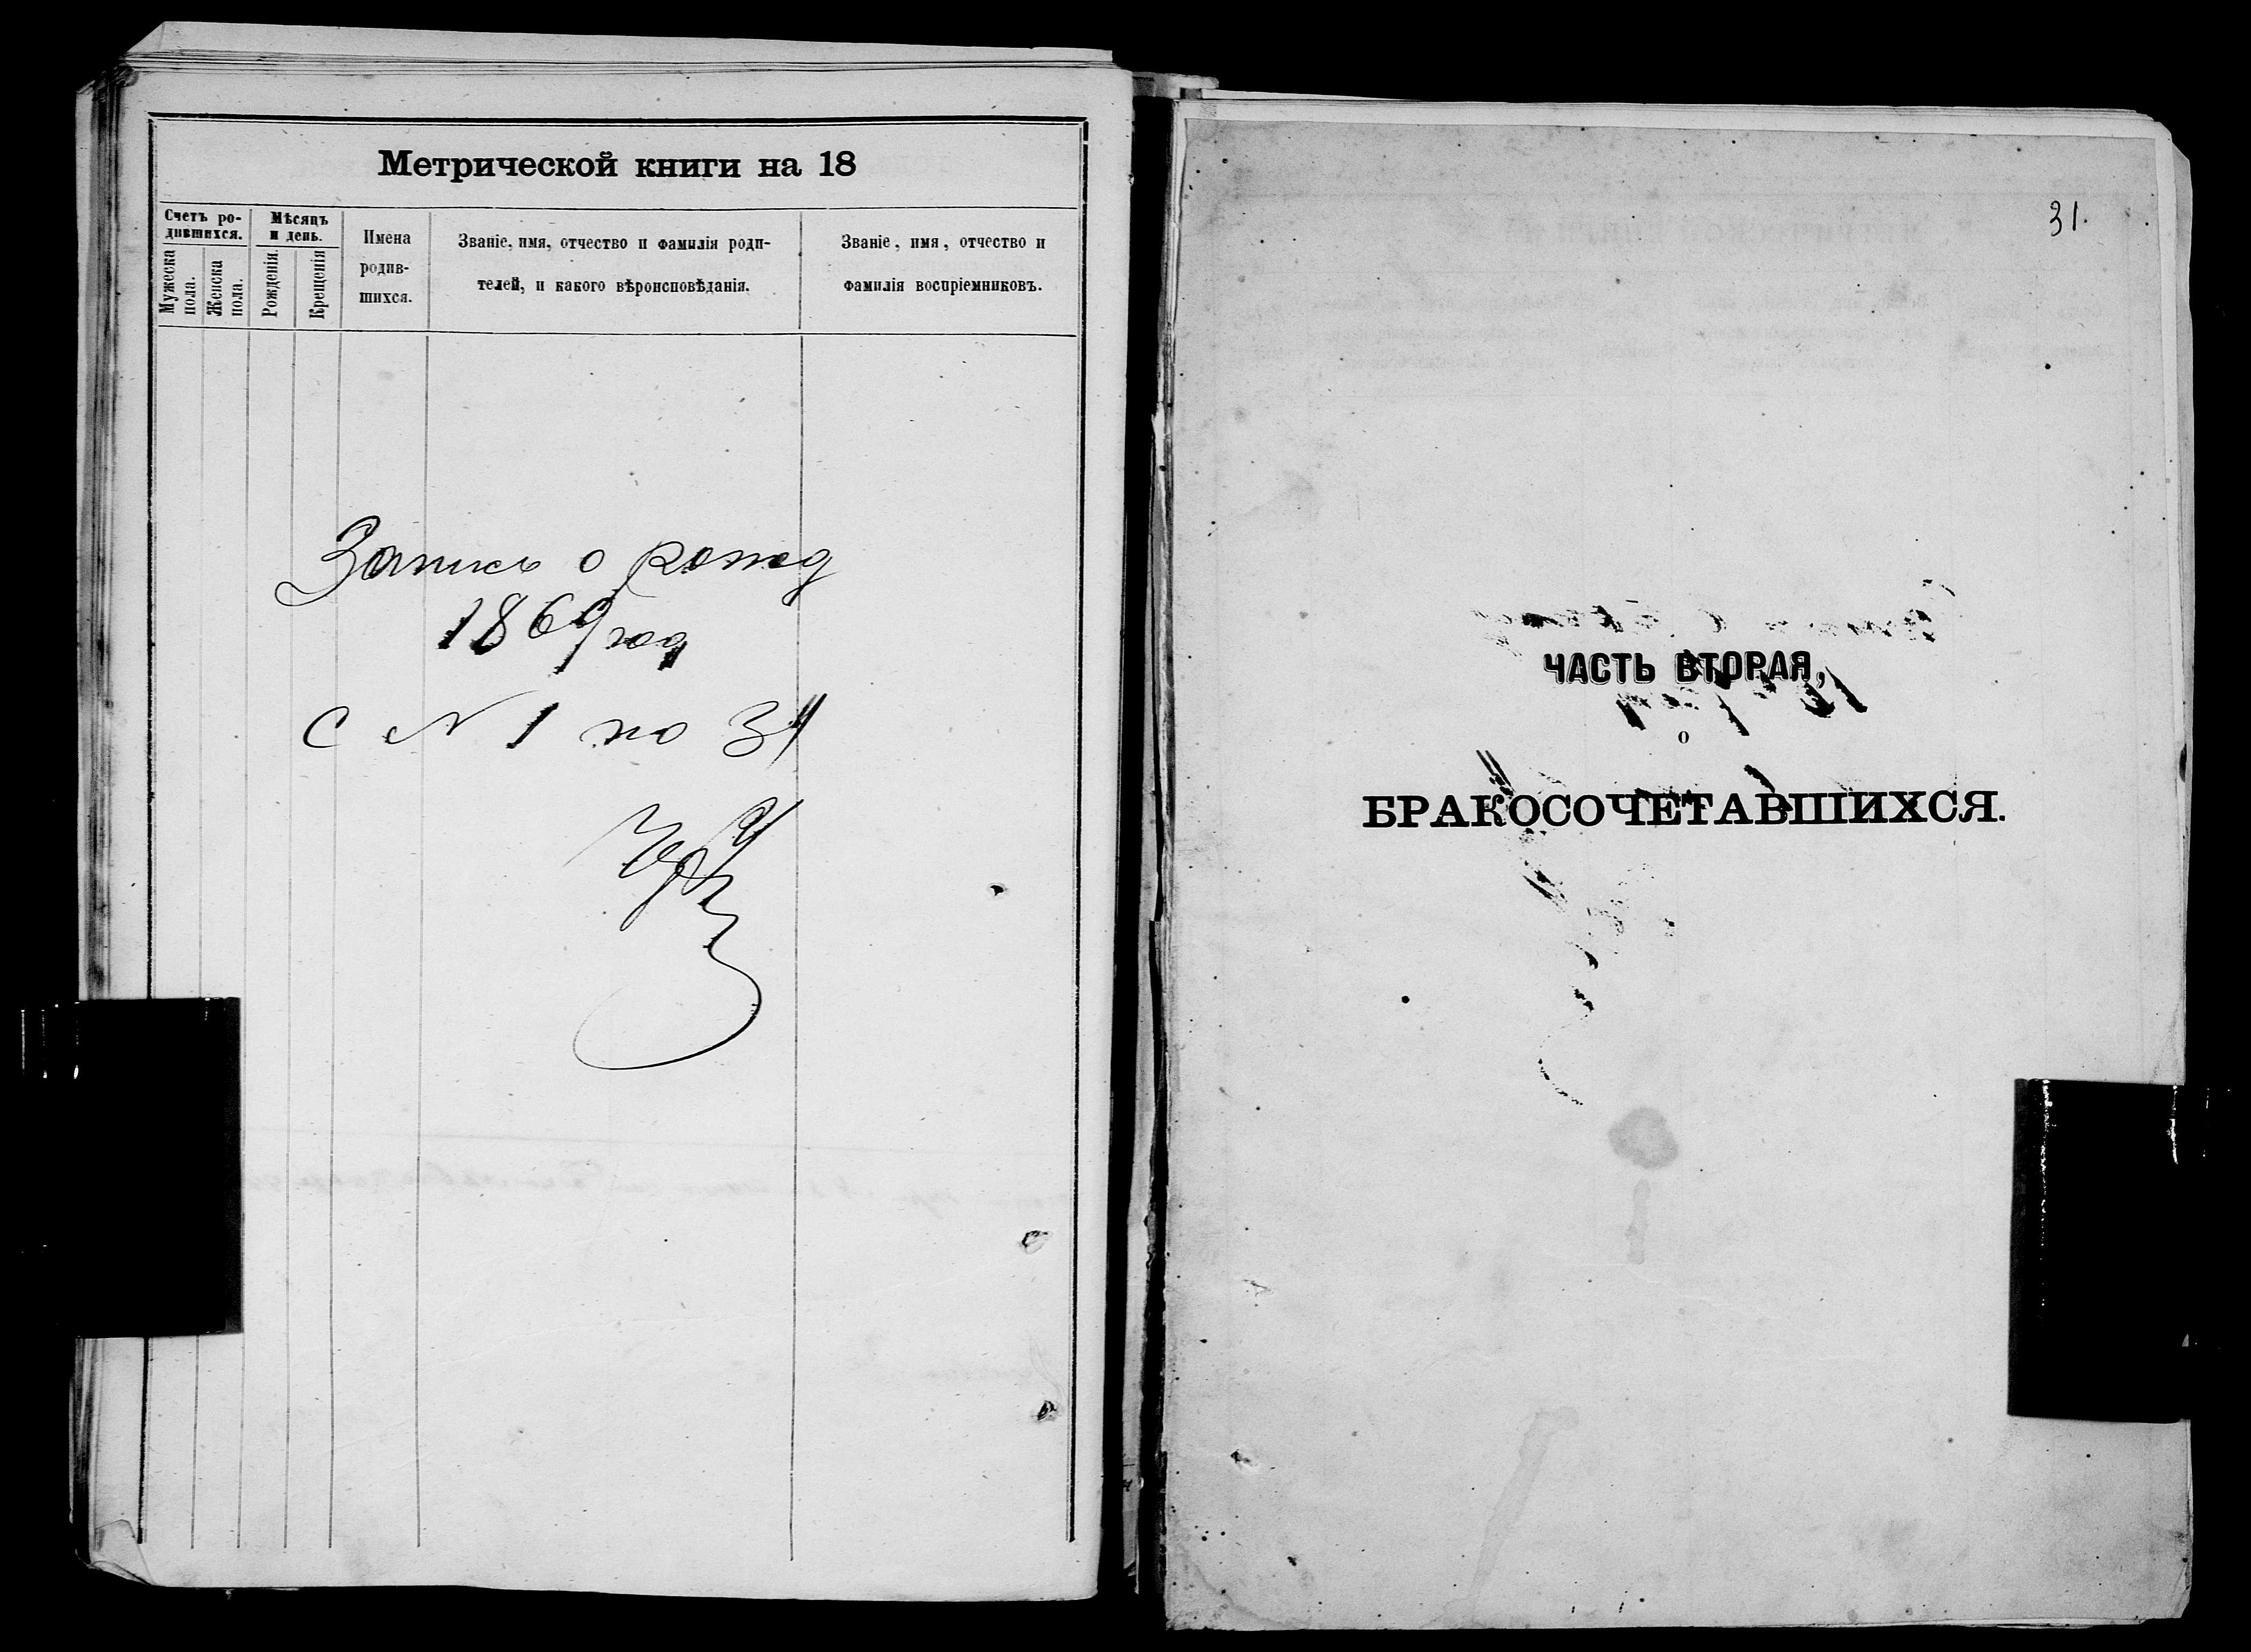 Метрической книги на 18
Счетъ ро-
дившихся.
Мужеска
пола.
Женска
пола.
Мѣсяцъ
и день.
Рожденія.
Крещенія
Имена
родив-
шихся.
Званіе, имя, отчество и фамилія роди-
телей, и какого вѣроисповѣданія.
Званіе, имя, отчество и
фамилія воспріемниковъ.
Запись о рожд
1869 год
с N 1 по 34
31.
ЧАСТЬ ВТОРАЯ,
о
БРАКОСОЧЕТАВШИХСЯ.